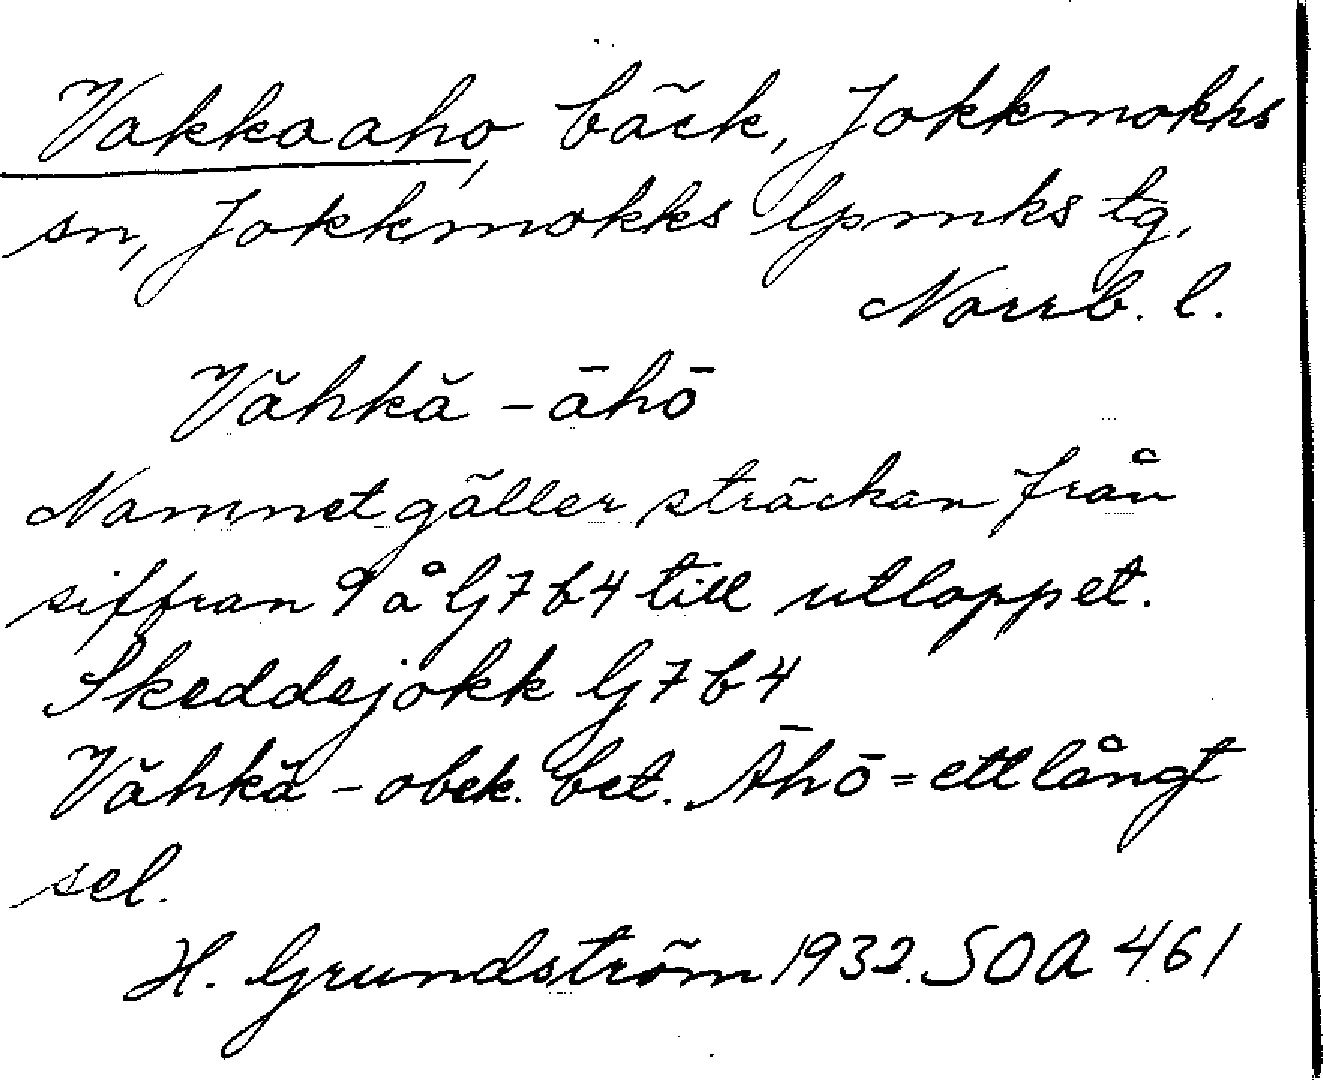 Vakkaaho, bäck, Jokkmokks
sn, Jokkmokks lpmks tg,
Norrb. l.
Văhkă - āhō
Namnet gäller sträckan från
siffran 9 å G7b4 till utloppet.
Skeddejokk G7b4
Văhkă - obek. bet. Āhō = ett långt
sel.
H. Grundström 1932. SOA 461